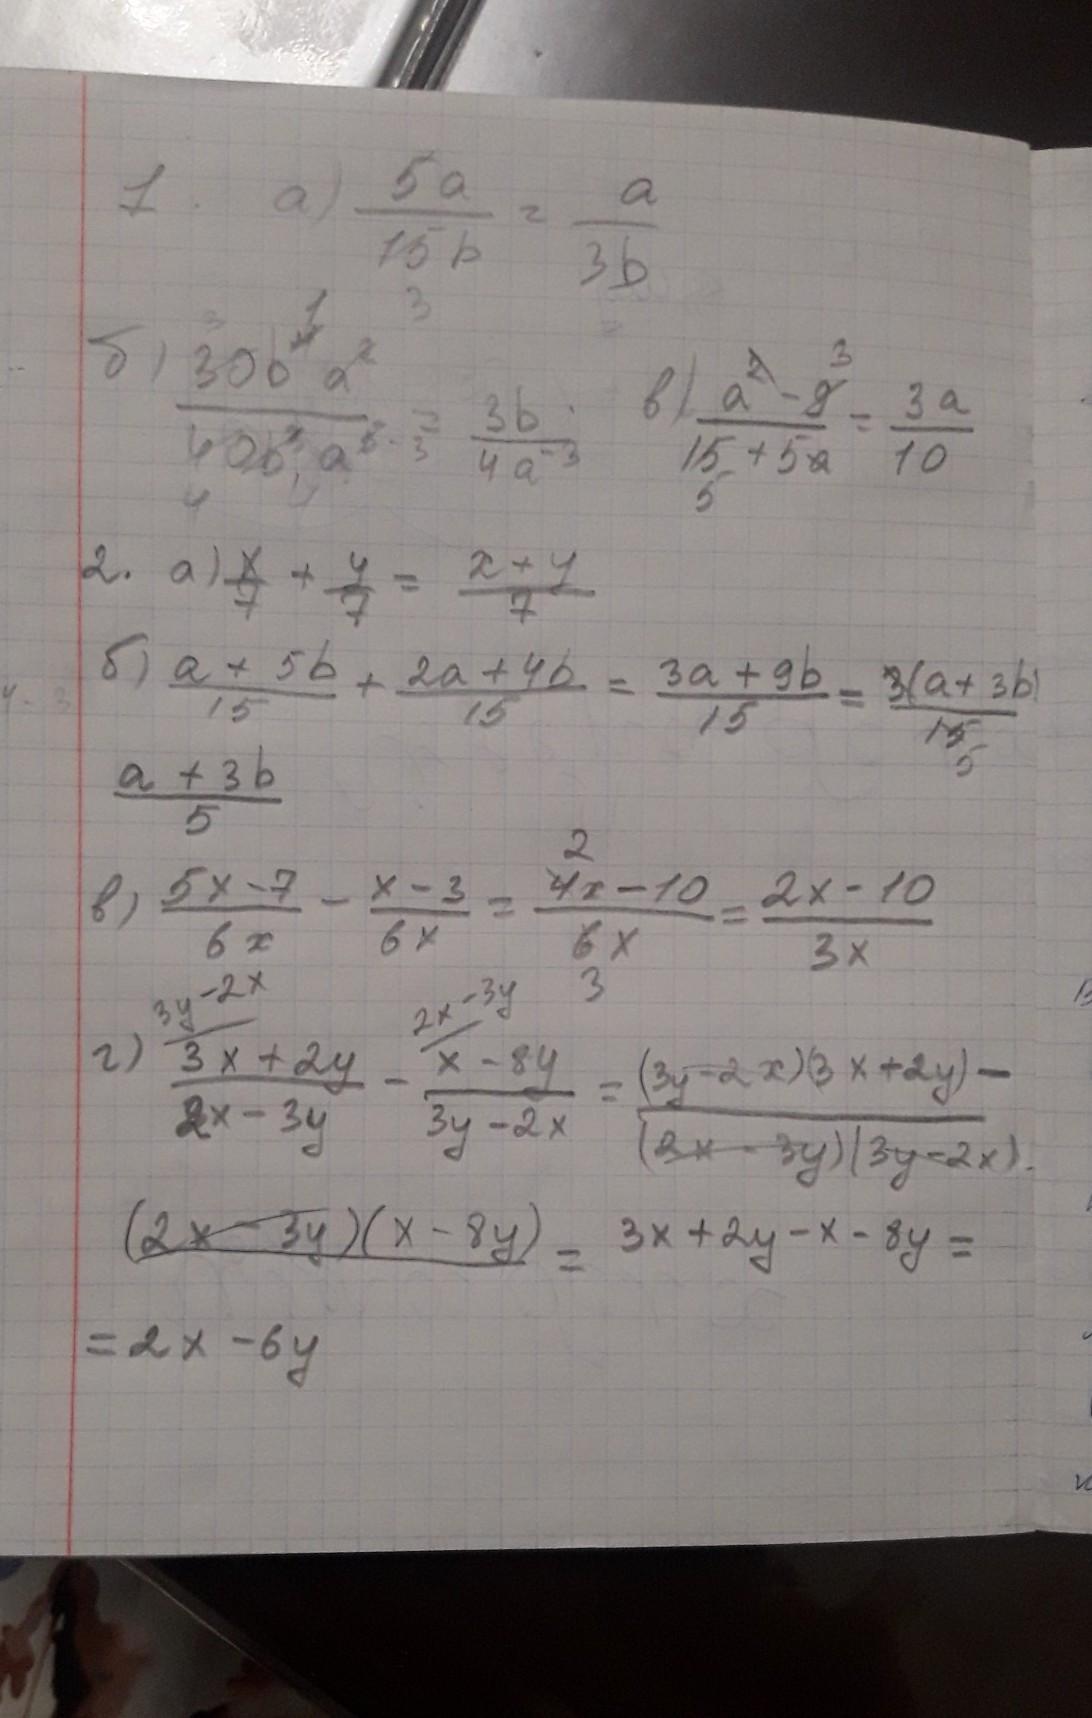 1. а) 5a/15b = a/3b
3
б) 30b⁴a²/40b³a⁵ = 3b/4a⁻³ в) a²-9/15+5a = 3a/10
4 5
2. а) x/7 + y/7 = x+y/7
б) a+5b/15 + 2a+4b/15 = 3a+9b/15 = 3(a+3b)/15
5
a+3b/5
2
в) 5x-7/6x - x-3/6x = 4x-10/6x = 2x-10/3x
3
3y-2x 2x-3y
г) 3x+2y/2x-3y - x-8y/3y-2x = (3y-2x)(3x+2y)-/(2x-3y)(3y-2x).
(2x-3y)(x-8y) = 3x+2y-x-8y=
=2x-6y